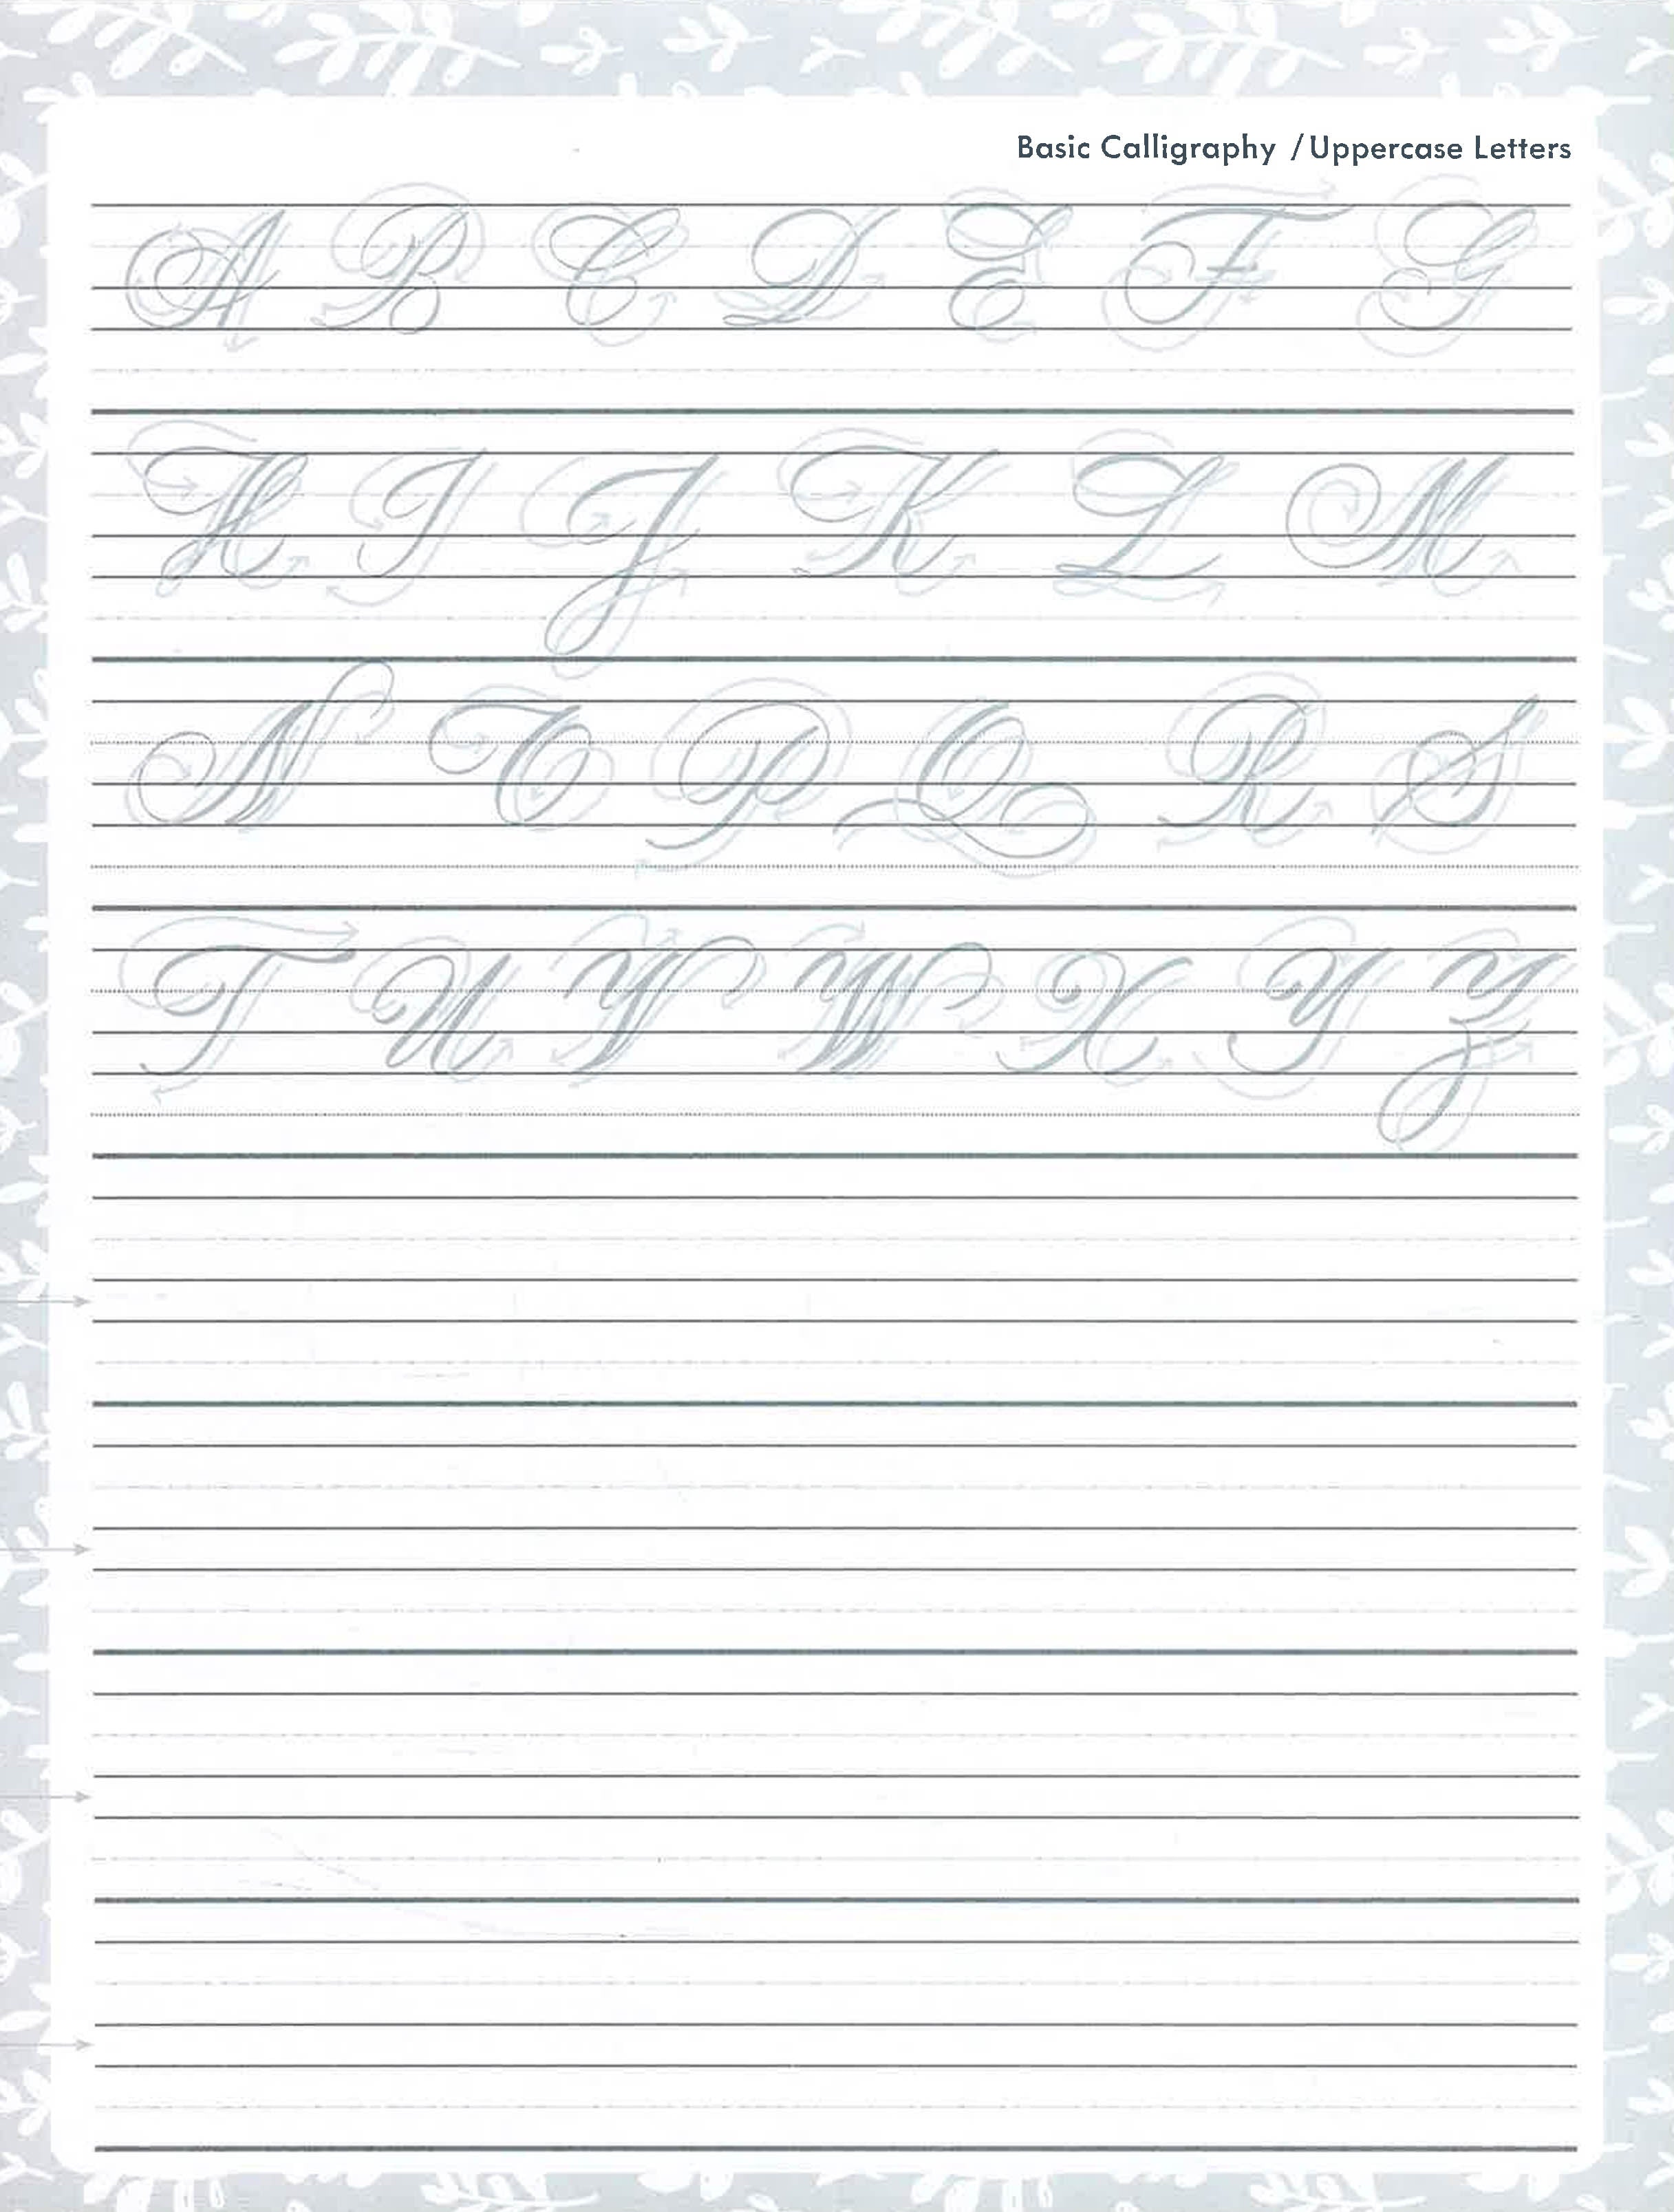 Basic Calligraphy / Uppercase Letters
A B C D E F G
H I J K L M
N O P Q R S
T U V W X Y Z